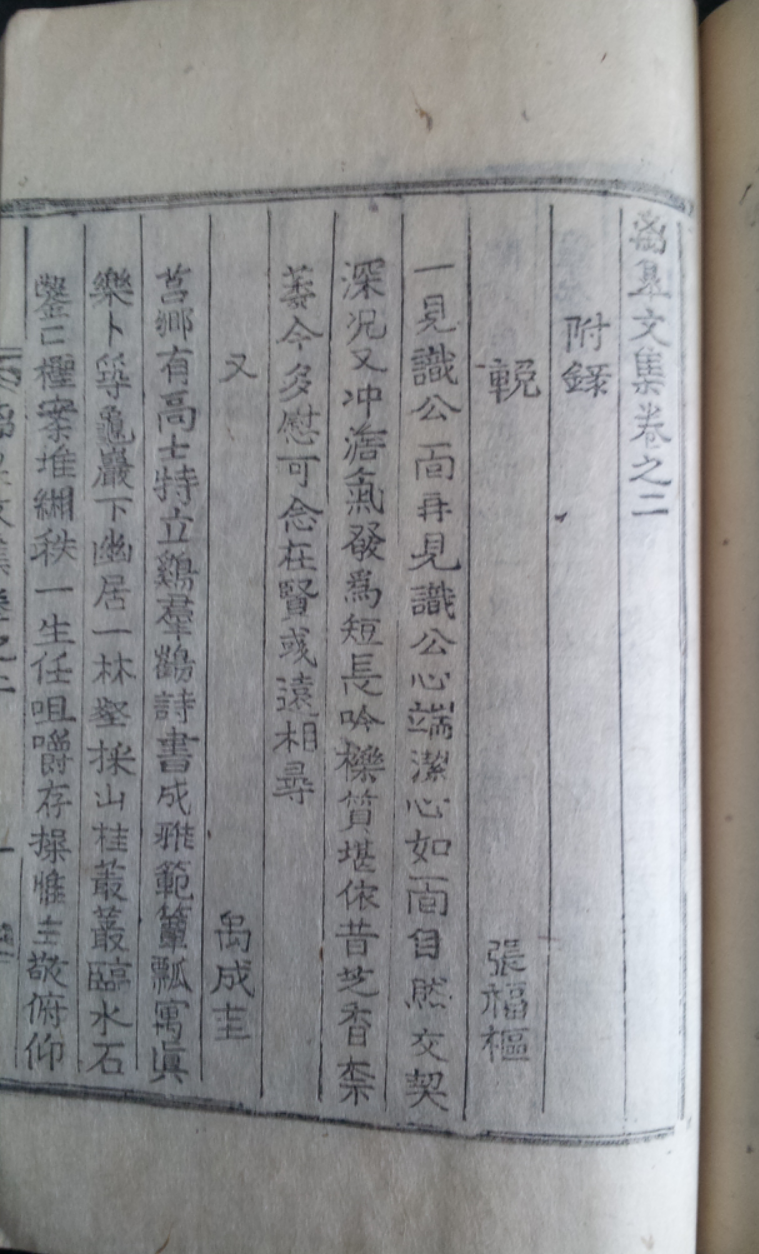 皐文集卷之二
附錄
輓 張福樞
一見識公面再見識公心端潔心如面自然交契
深况又冲澹氣發爲短長吟櫟質堪依昔芝香柰
萎今多慰可念在賢彧遠相尋
又 禹成圭
莒鄉有高士特立鷄羣鶴詩書成雅範簞瓢寓眞
樂卜築龜巖下幽居一林壑採山桂叢叢臨水石
鑿鑿己極案堆緗秩一生任咀嚼存操惟主敬俯仰
文集卷之二